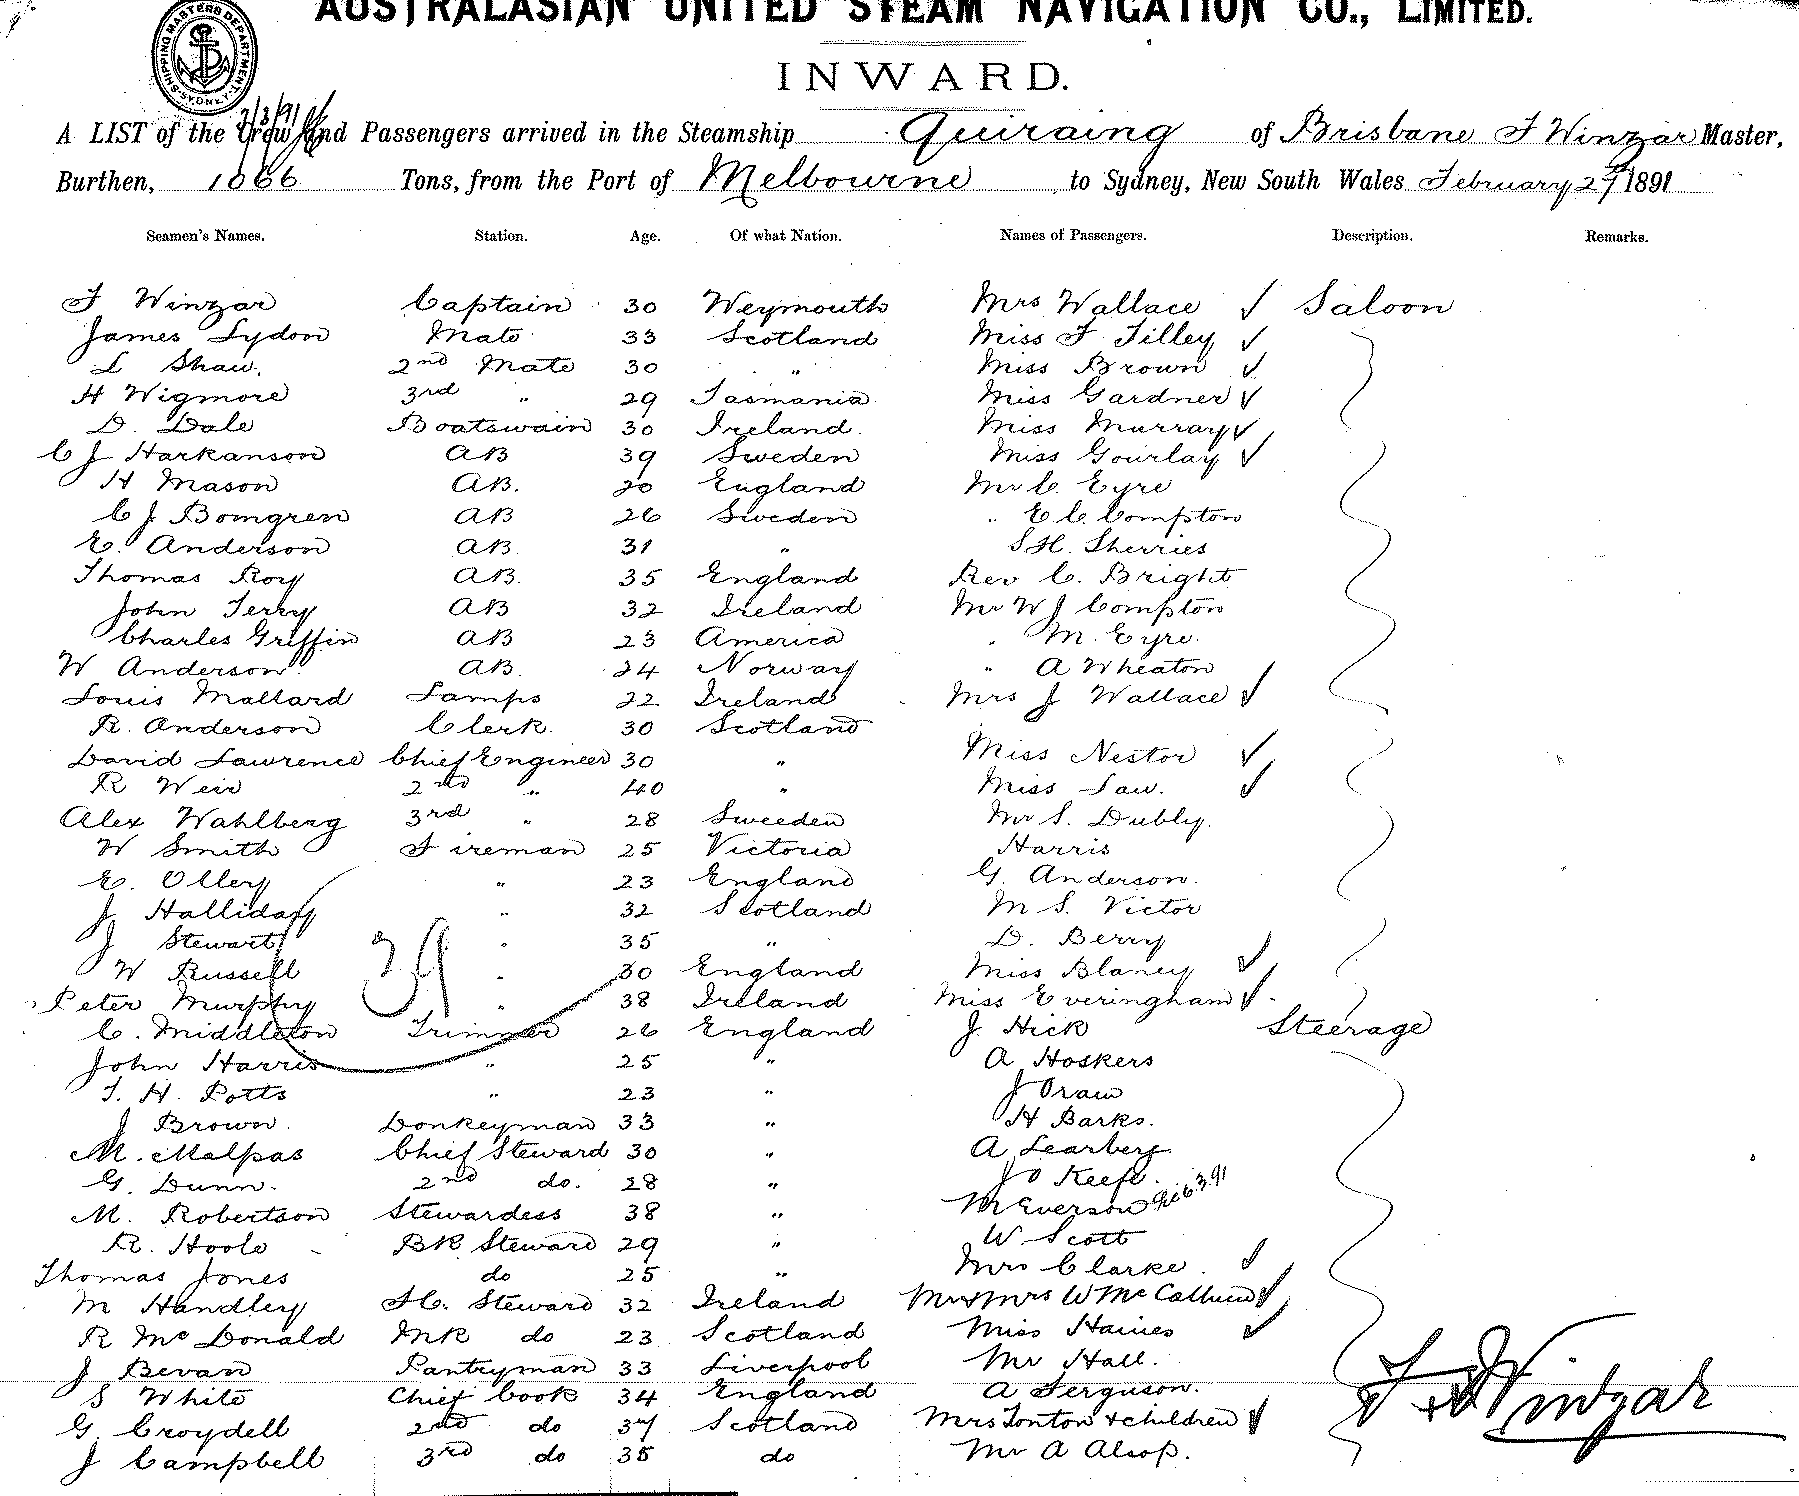 AUSTRALASIAN UNITED STEAM NAVIGATION CO., LIMITED.
SHIPPING MASTERS DEPARTMENT. SYDNEY
INWARD.
2/3/91
A LIST of the Crew and Passengers arrived in the Steamship Quiraing of Brisbane F Winzar Master,
Burthen, 1066 Tons, from the Port of Melbourne to Sydney, New South Wales February 27 1891
Seamen's Names. Station. Age. Of what Nation. Names of Passengers. Description. Remarks.
F Winzar Captain 30 Weymouth Mrs Wallace ✓ Saloon
James Lydon Mate 33 Scotland Miss F Tilley ✓
L Shaw. 2nd Mate 30 " Miss Brown ✓
H Wigmore 3rd " 29 Tasmania Miss Gardner ✓
D. Dale Boatswain 30 Ireland. Miss Murray ✓
C J Harkanson AB 39 Sweden Miss Gourlay ✓
H Mason AB. 20 England Mr C. Eyre
C J Bomgren AB 26 Sweden " E C Compton
E. Anderson AB 31 " S H. Sherries
Thomas Roy AB. 35 England Rev C. Bright
John Terry AB 32 Ireland Mr W J Compton
Charles Griffin AB 23 America " M. Eyre.
W Anderson AB. 24 Norway " A Wheaton
Louis Mallard Lamps 22 Ireland Mrs J Wallace ✓
R. Anderson Clerk. 30 Scotland
David Lawrence Chief Engineer 30 " Miss Nestor ✓
R Weir 2nd " 40 " Miss Law. ✓
Alex Wahlberg 3rd " 28 Sweeden Mr S. Dubly.
W Smith Fireman 25 Victoria Harris
E. Ollery " 23 England G. Anderson.
J Halliday " 32 Scotland M S. Victor
J Stewart " 35 " D. Berry
39
W Russell " 30 England Miss Blaney ✓
Peter Murphy " 38 Ireland Miss Everingham ✓
C. Middleton Trimmer 26 England J Hick Steerage
John Harris " 25 " A Hoskers
T. H. Potts " 23 " J Oraw
J Brown. Donkeyman 33 " H Barks.
M. Malpas Chief Steward 30 " A Learberg
G. Dunn. 2nd do. 28 " J O Keefe.
M. Robertson Stewardess 38 " M Everson
R. Hoole BR Steward 29 " W Scott
Thomas Jones do 25 " Mrs Clarke. ✓
M Handley St. Steward 32 Ireland Mr & Mrs W Mc Calhum ✓
R Mc Donald MR do 23 Scotland Miss Haines ✓
J Bevan Pantryman 33 Liverpool Mr Hall.
S White Chief Cook 34 England A Ferguson.
G Croydell 2nd do 37 Scotland Mrs Tonton & children ✓
J Campbell 3rd do 35 do Mr A Alsop.
F Winzar